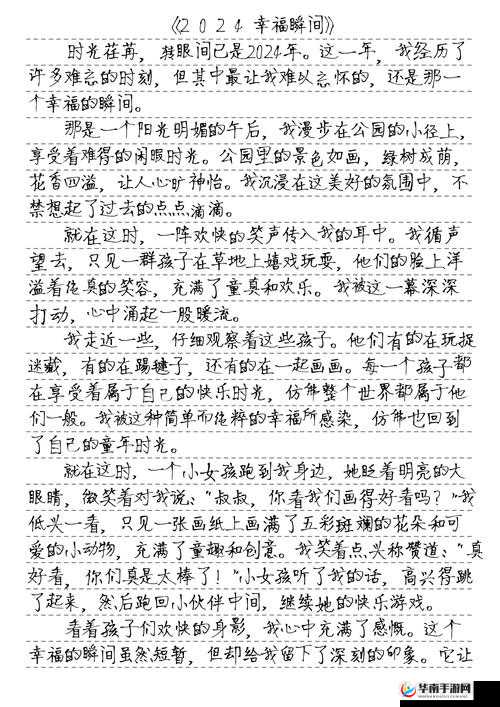 《2024幸福瞬间》
时光荏苒，转眼间已是2024年。这一年，我经历了
许多难忘的时刻，但其中最让我难以忘怀的，还是那一
个幸福的瞬间。
那是一个阳光明媚的午后，我漫步在公园的小径上，
享受着难得的闲暇时光。公园里的景色如画，绿树成荫，
花香四溢，让人心旷神怡。我沉浸在这美好的氛围中，不
禁想起了过去的点点滴滴。
就在这时，一阵欢快的笑声传入我的耳中。我循声
望去，只见一群孩子在草地上嬉戏玩耍，他们的脸上洋
溢着纯真的笑容，充满了童真和欢乐。我被这一幕深深
打动，心中涌起一股暖流。
我走近一些，仔细观察着这些孩子。他们有的在玩捉
迷藏，有的在踢毽子，还有的在一起画画。每一个孩子都
在享受着属于自己的快乐时光，仿佛整个世界都属于他
们一般。我被这种简单而纯粹的幸福所感染，仿佛也回到
了自己的童年时光。
就在这时，一个小女孩跑到我身边，她眨着明亮的大
眼睛，微笑着对我说："叔叔，你看我们画得好看吗？"我
低头一看，只见一张画纸上画满了五彩斑斓的花朵和可
爱的小动物，充满了童趣和创意。我笑着点头称赞道："真
好看，你们真是太棒了！"小女孩听了我的话，高兴得跳
了起来，然后跑回小伙伴中间，继续她的快乐游戏。
看着孩子们欢快的身影，我心中充满了感慨。这个
幸福的瞬间虽然短暂，但却给我留下了深刻的印象。它让
华南手游网